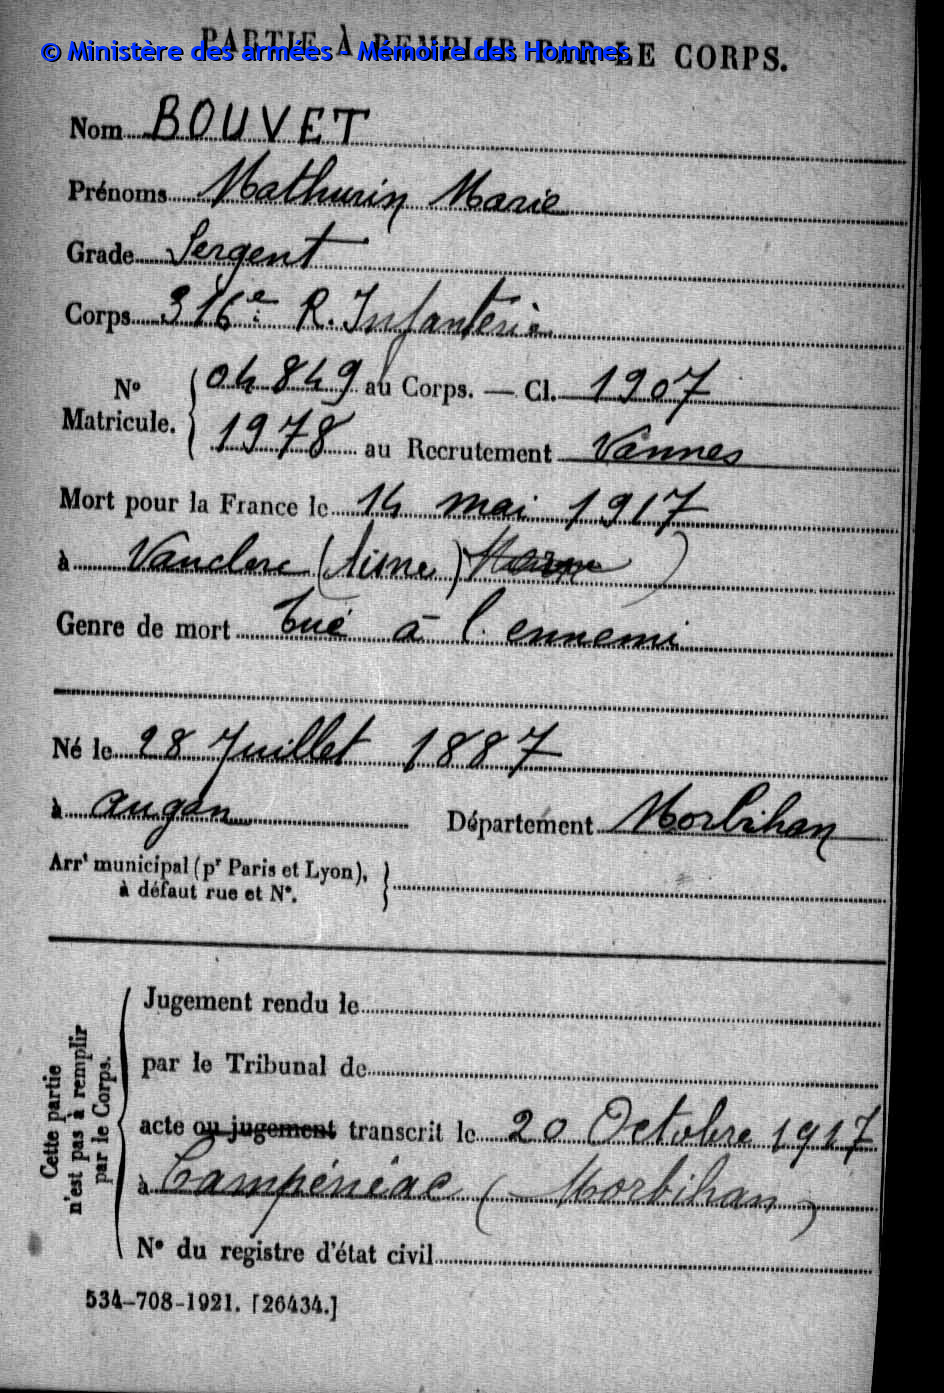 PARTIE À REMPLIR PAR LE CORPS.
© Ministère des armées - Mémoire des Hommes
Nom BOUVET
Prénoms Mathurin Marie
Grade Sergent
Corps 316e R. Infanterie
No Matricule. { 04849 au Corps. — Cl. 1907
1978 au Recrutement Vannes
Mort pour la France le 14 mai 1917
à Vauclerc (Aisne) Marne )
Genre de mort tué à l'ennemi
Né le 28 Juillet 1887
à augan Département Morbihan
Arrt municipal (pr Paris et Lyon), }
à défaut rue et No.
Cette partie
n'est pas à remplir
par le Corps.
Jugement rendu le
par le Tribunal de
acte ou jugement transcrit le 20 Octobre 1917
à Campénéac (Morbihan)
No du registre d'état civil
534-708-1921. [26434.]